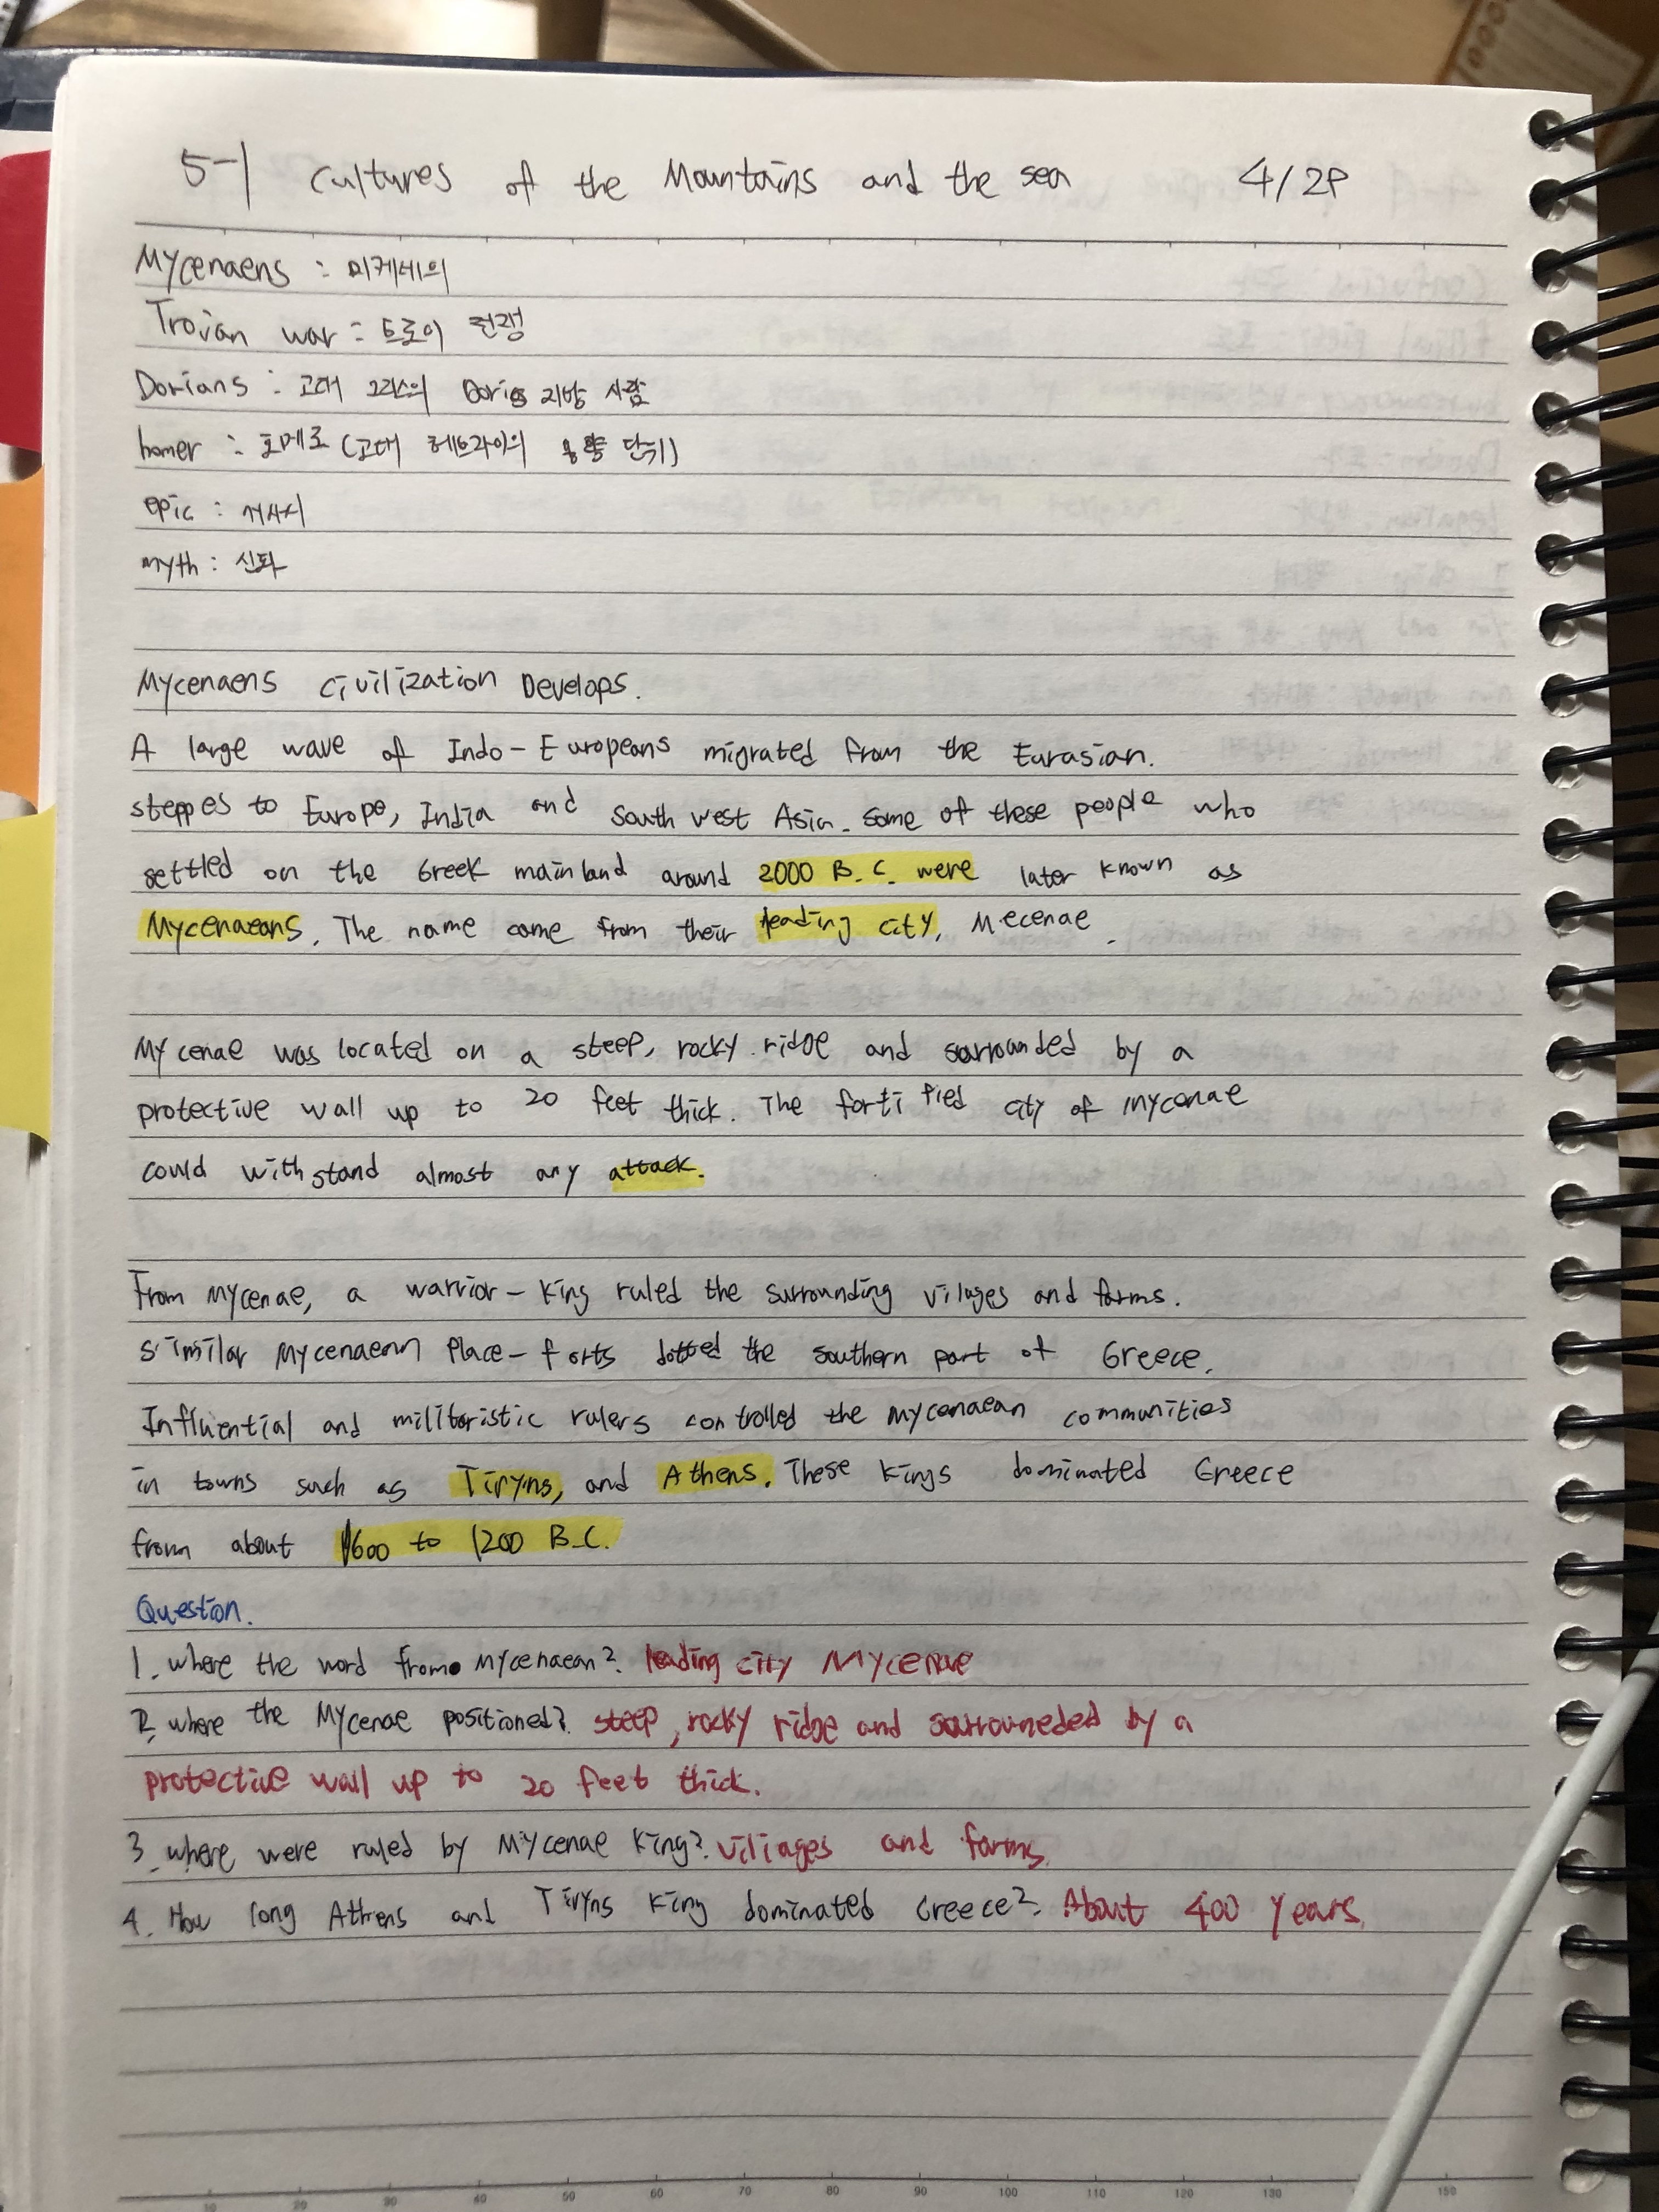 5-1 Cultures of the Mountains and the sea 4/29
Mycenaens : 미케네의
Trojan war : 트로이 전쟁
Dorians : 고대 그리스의 Doris 지방 사람
homer : 호메로 (고대 헤브라이의 용량 단위)
epic : 서사시
myth : 신화
Mycenaens civilization Develops.
A large wave of Indo-Europeans migrated from the Eurasian.
steppes to Europe, India and South west Asia. Some of these people who
settled on the Greek mainland around 2000 B.C. were later known as
Mycenaeans. The name come from their leading city, Mecenae.
Mycenae was located on a steep, rocky ridge and sarrounded by a
protective wall up to 20 feet thick. The fortified city of mycenae
could withstand almost any attack.
From Mycenae, a warrior-king ruled the surrounding villages and farms.
Similar Mycenaenn Place-forts dotted the southern part of Greece.
Influential and militaristic rulers controlled the mycenaean communities
in towns such as Tiryns, and Athens. These kings dominated Greece
from about 1600 to 1200 B.C.
Question.
1. where the word from mycenaean? leading city Mycenae
2. where the Mycenae positioned? steep, rocky ridge and sarrouneded by a
protective wall up to 20 feet thick.
3. where were ruled by Mycenae King? villages and farms.
4. How long Athens and Tiryns King dominated Greece? About 400 years.
10 20 30 40 50 60 70 80 90 100 110 120 130 150